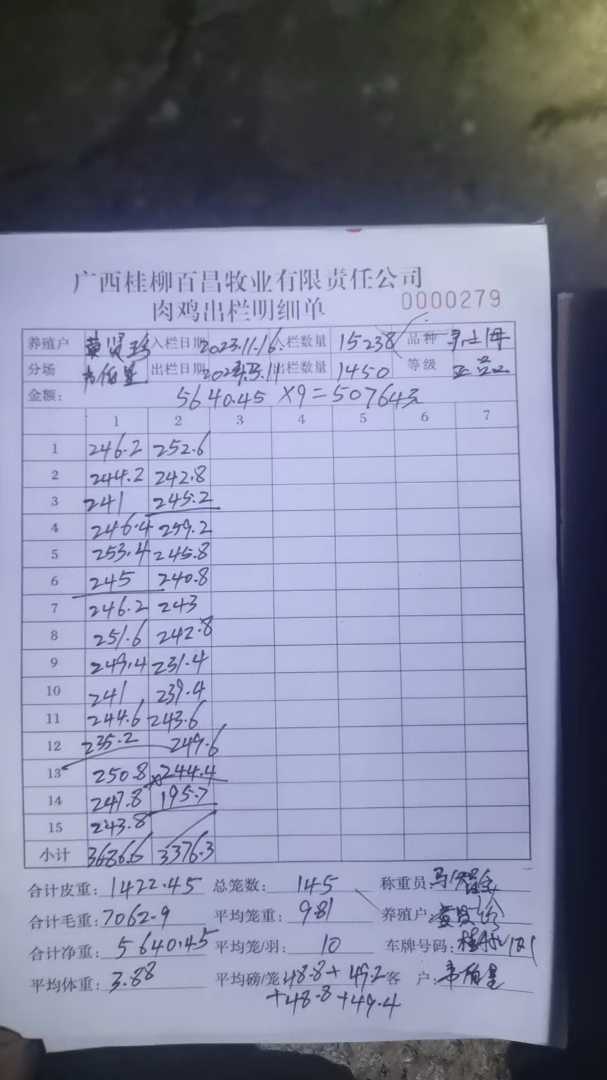 广西桂柳百昌牧业有限责任公司
肉鸡出栏明细单 0000279
养殖户 黄贤珍 入栏日期 2023.11.16 栏数量 15238 品种
分场 韦伯星 出栏日期 出栏数量 1450 等级 正品
金额: 5640.45 ×9=50764元
1 2 3 4 5 6 7
1 246.2 252.6
2 244.2 242.8
3 241 245.2
4 246.4 259.2
5 253.4 245.8
6 245 240.8
7 246.2 243
8 251.6 242.8
9 249.4 231.4
10 241 239.4
11 244.6 243.6
12 235.2 249.6
13 250.8 244.4
14 247.8 195.7
15 243.8
小计 3686.6 3376.3
合计皮重: 1422.45 总笼数: 145 称重员:
合计毛重: 7062.9 平均笼重: 981 养殖户: 黄贤珍
合计净重: 5640.45 平均笼/羽: 10 车牌号码:
平均体重: 3.88 平均磅/笼 48.8+49.2 客 户: 韦伯星
+48.8+49.4